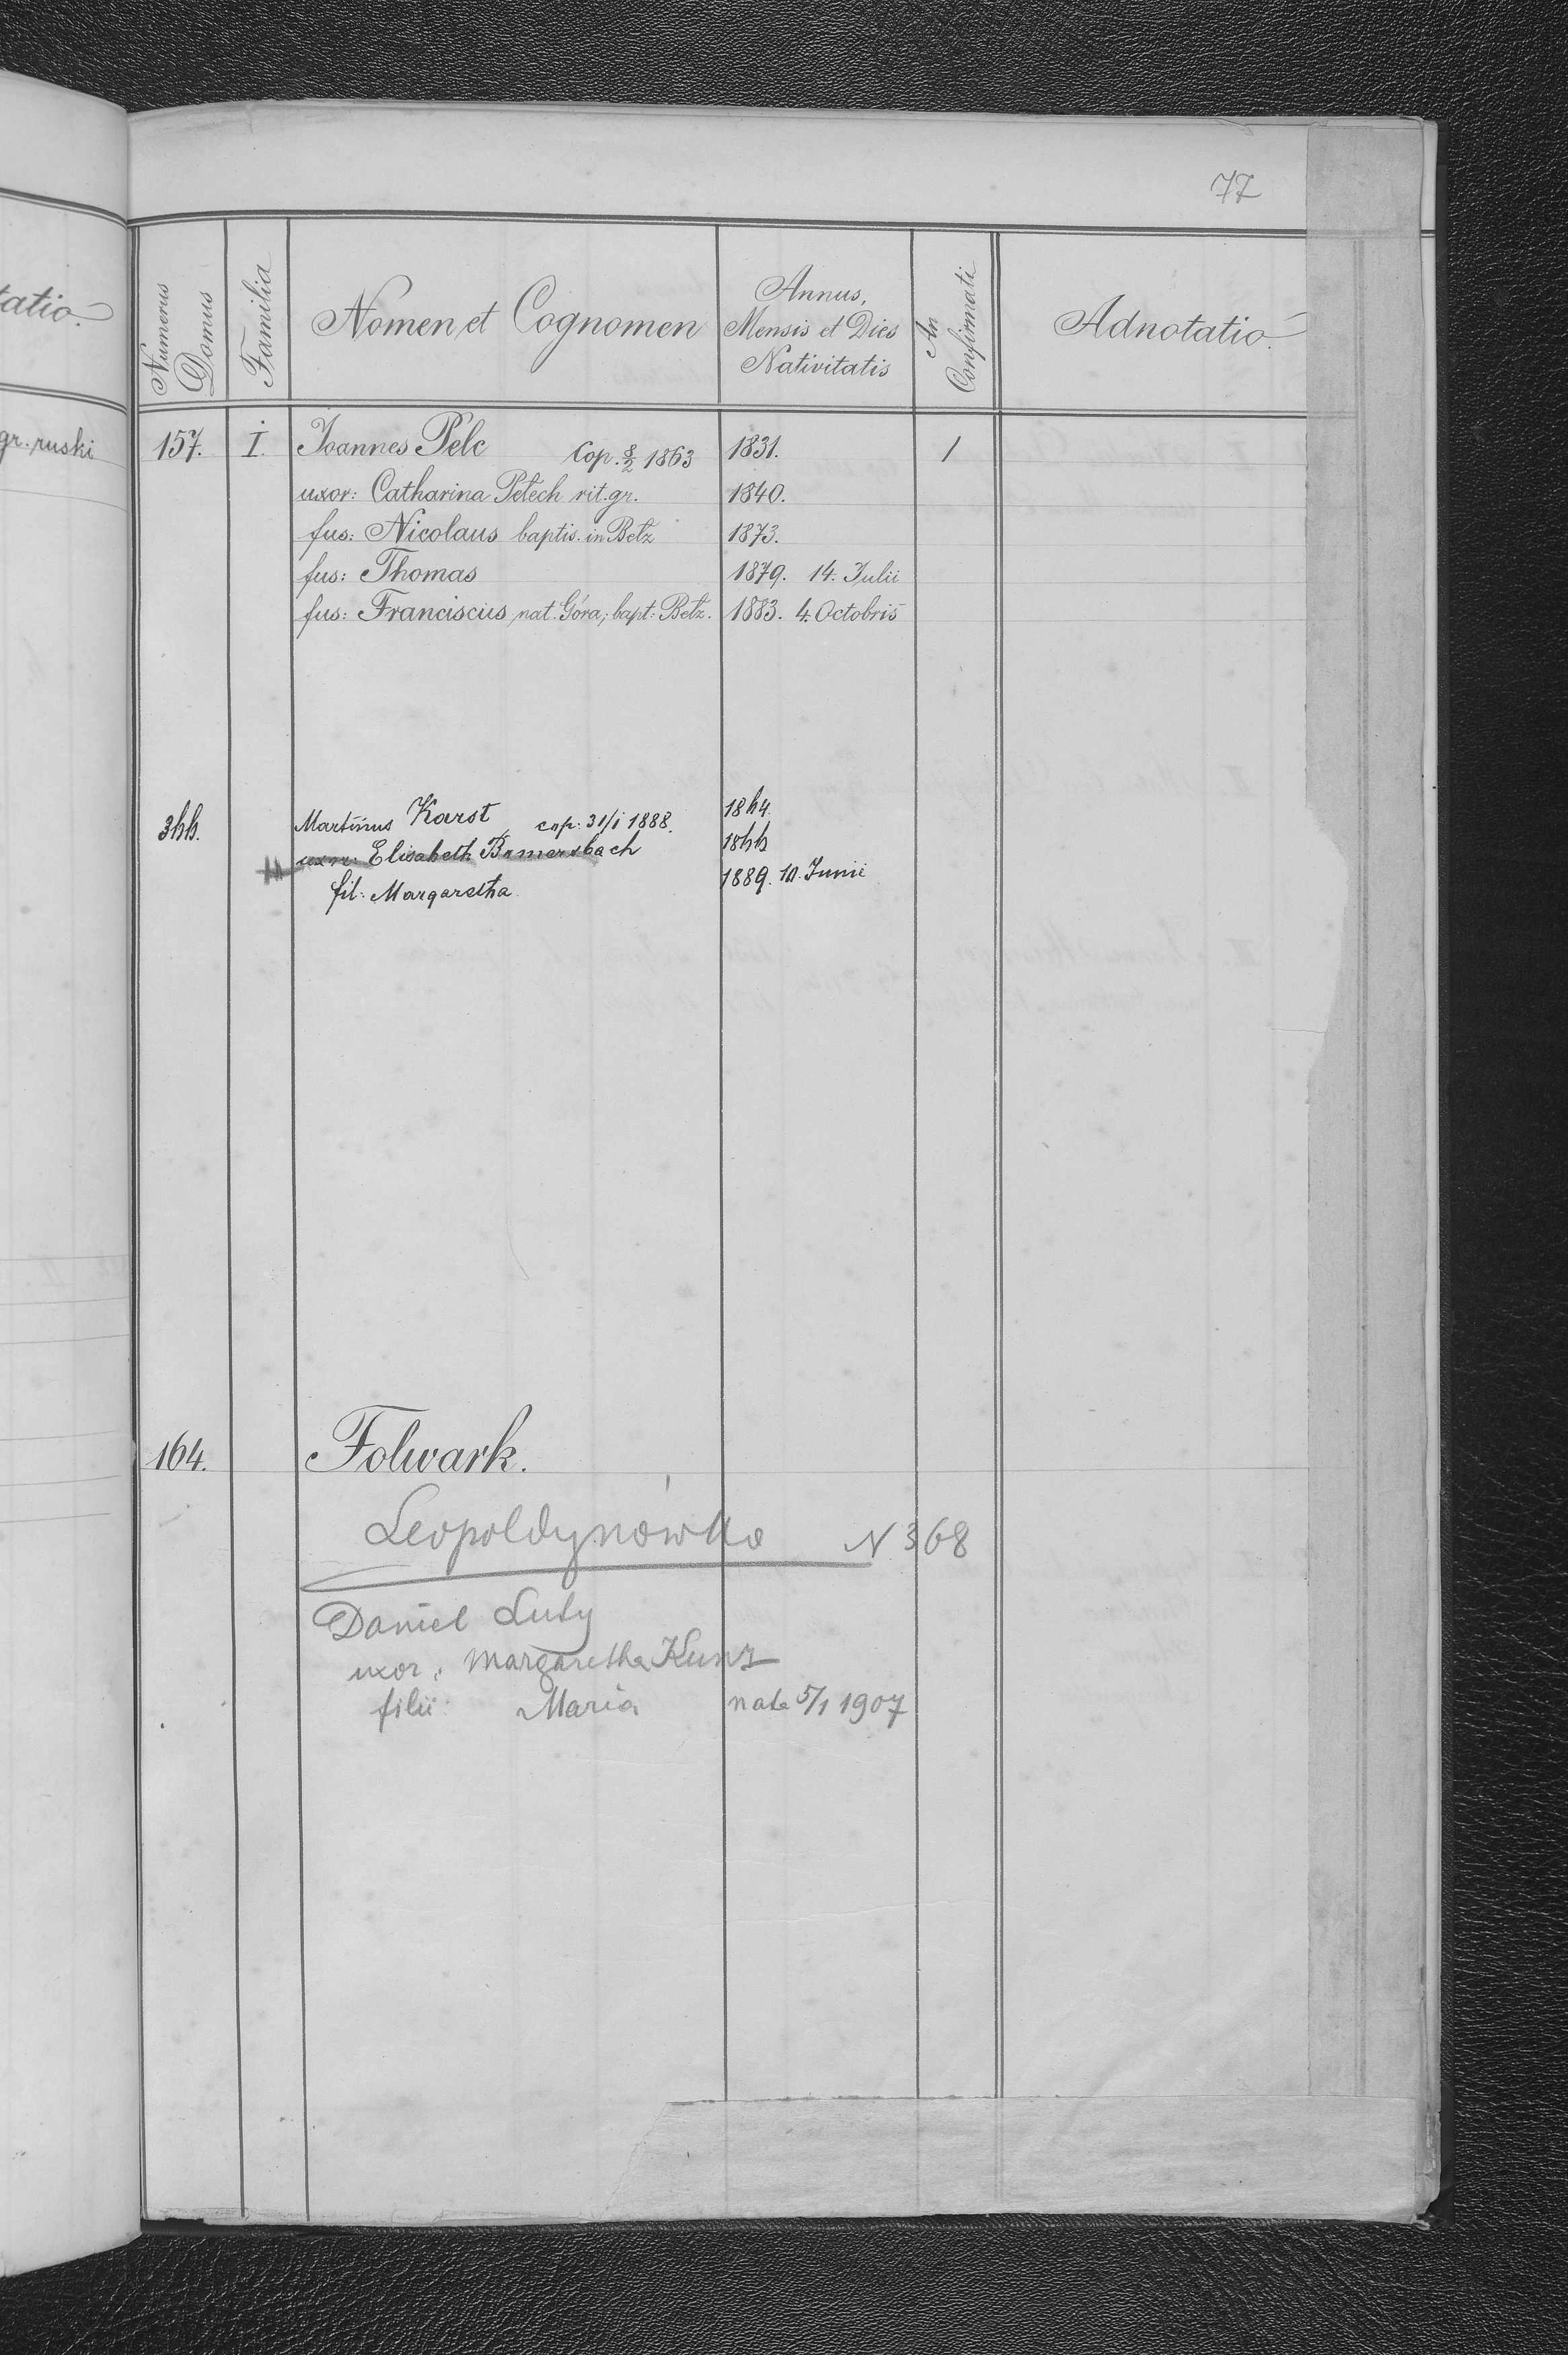 tatio.
gr. ruski
77
Numerus Domus
Familia
Nomen et Cognomen
Annus, Mensis et Dies Nativitatis
An Confirmati
Adnotatio.
157. I. Joannes Pelc Cop. 8/2 1863 1831. 1
uxor: Catharina Petech rit. gr. 1840.
fus: Nicolaus baptis. in Betz 1873.
fus: Thomas 1879. 14. Julii
fus: Franciscus nat. Góra; bapt: Betz. 1883. 4. Octobris
366. Martinus Karst cop: 31/1 1888. 1864.
uxor: Elisabeth Bomersbach 1866
fil: Margaretha 1889. 10. Junii
164. Folwark.
Leopoldynówka N 368
Daniel Luty
uxor: Margaretha Kunz
filii: Maria nata 5/1 1907